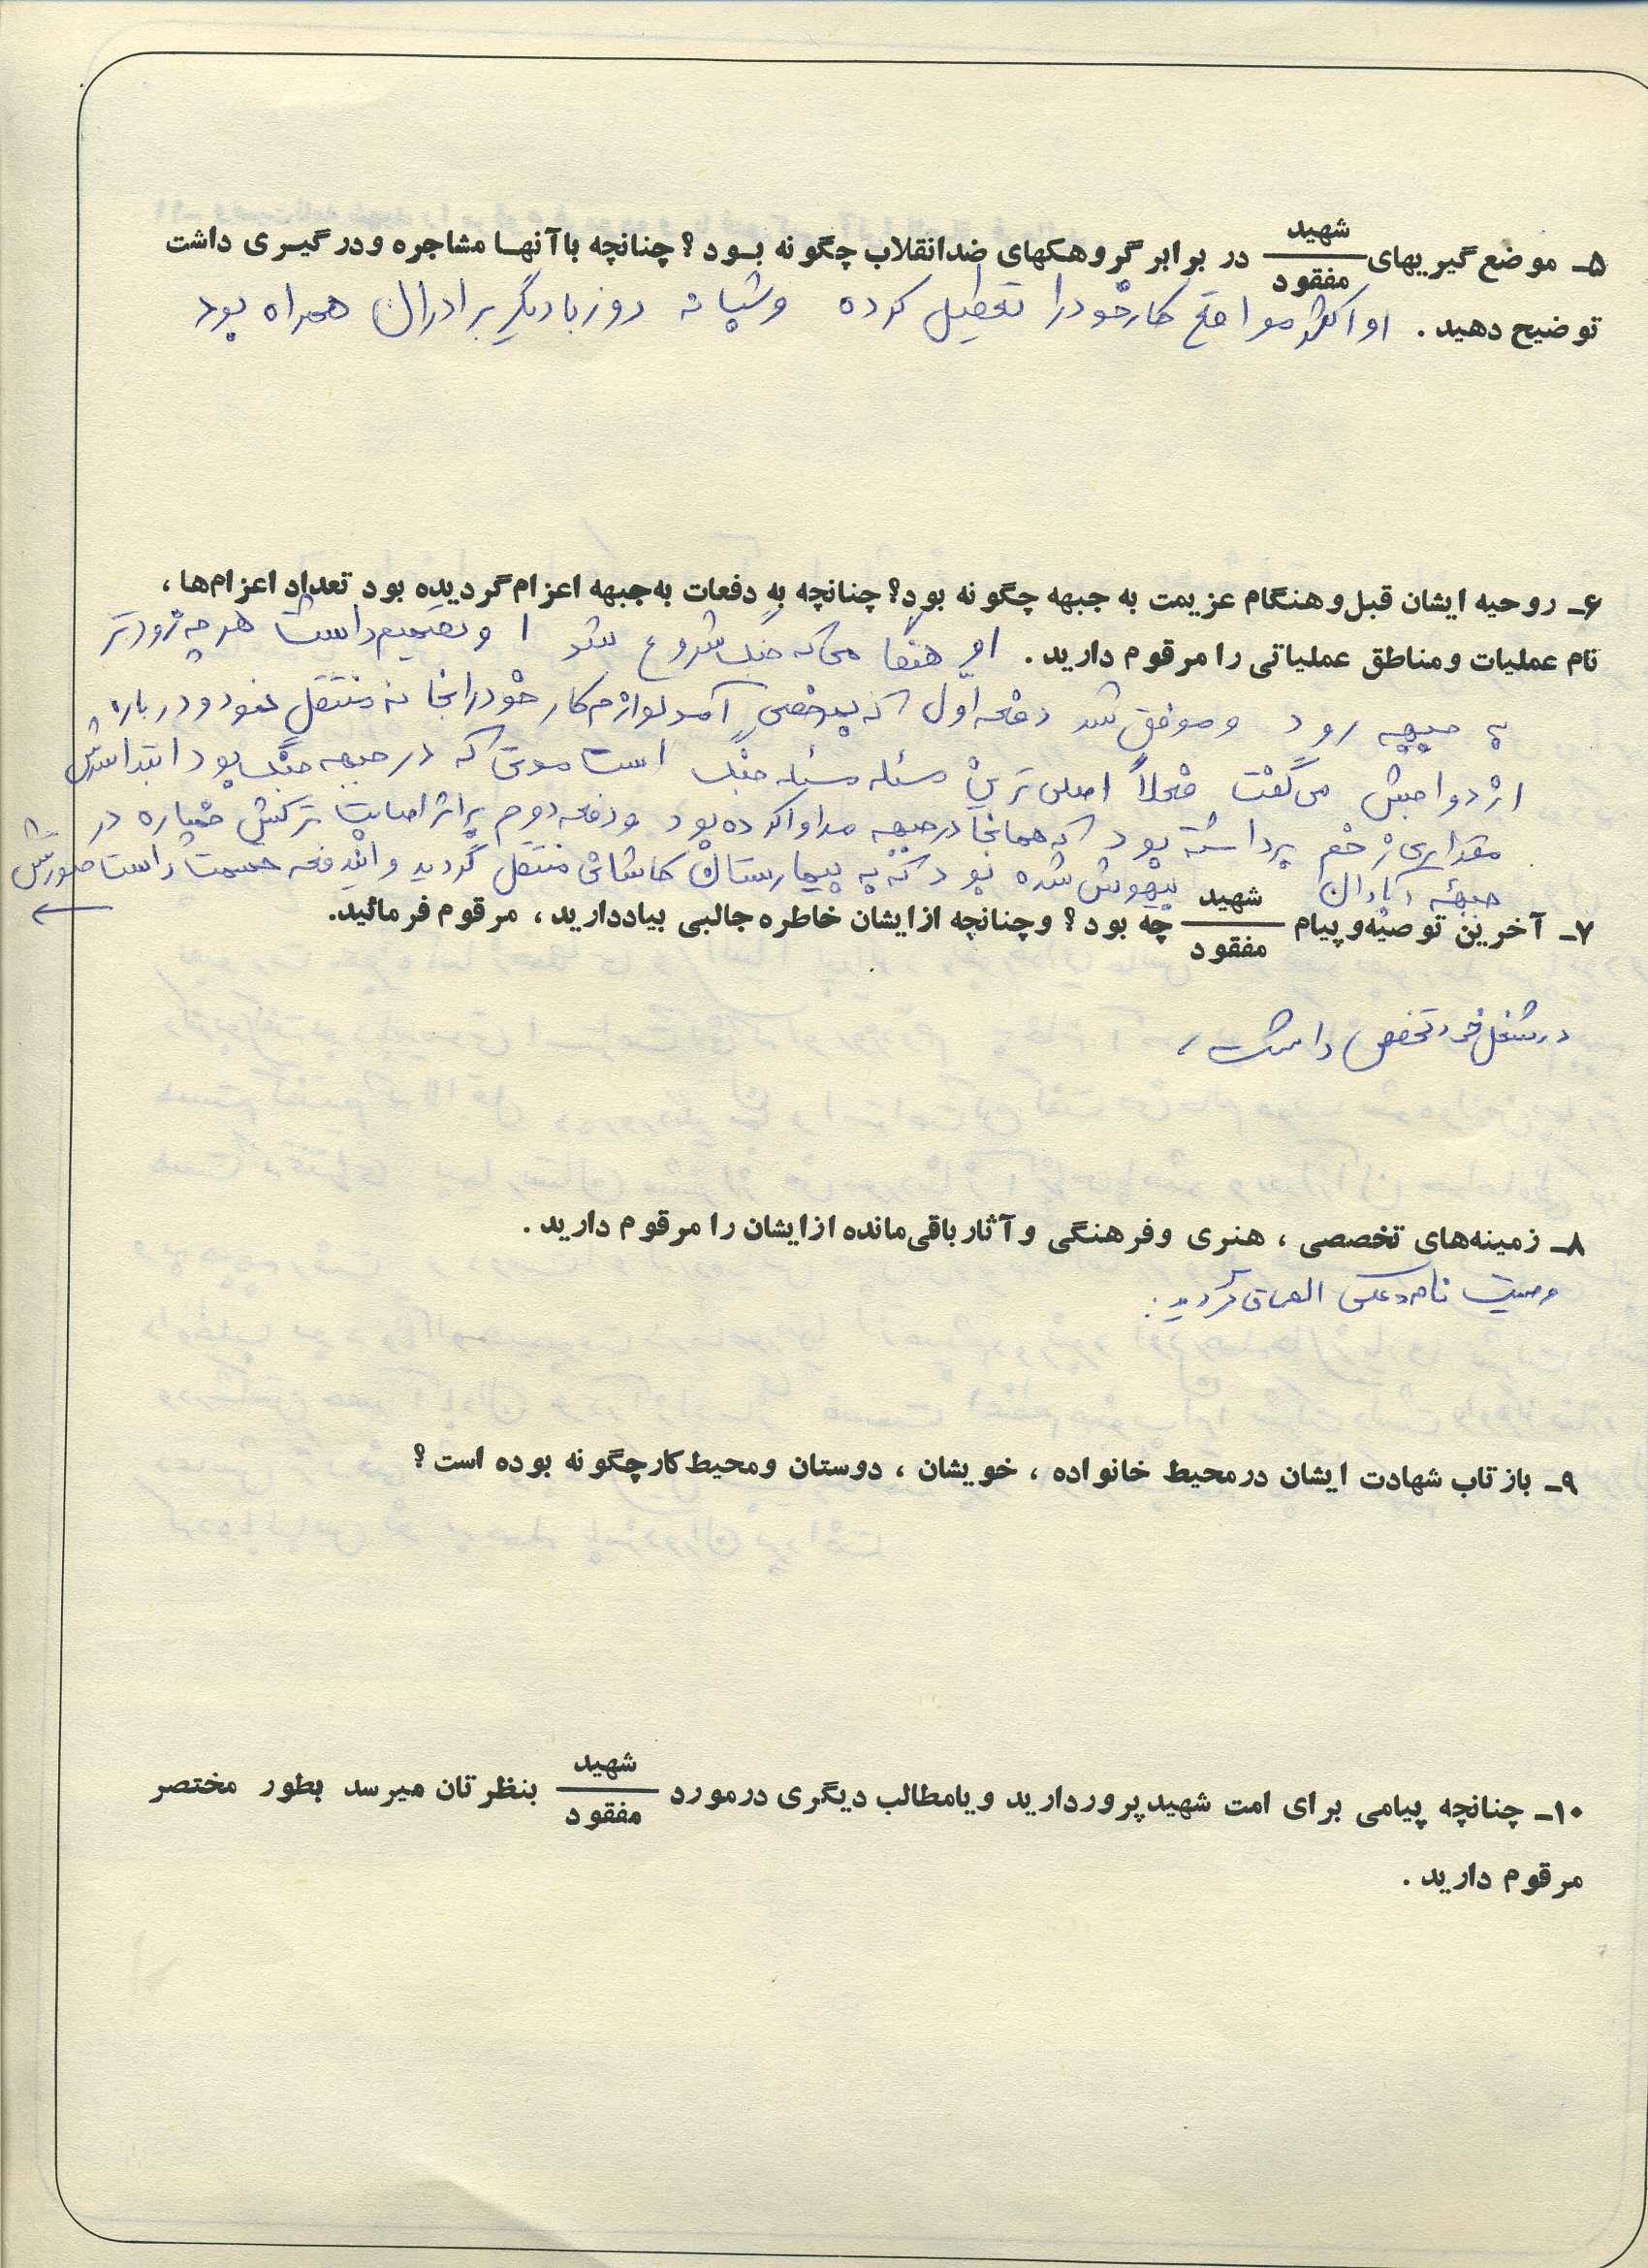 ۵ـ موضع گیریهای شهید / مفقود در برابر گروهکهای ضدانقلاب چگونه بود؟ چنانچه باآنها مشاجره ودرگیری داشت
توضیح دهید. او اکثر مواقع کار خود را تعطیل کرده وشبانه روز بادیگر برادران همراه بود
۶ـ روحیه ایشان قبل وهنگام عزیمت به جبهه چگونه بود؟ چنانچه به دفعات به جبهه اعزام گردیده بود تعداد اعزام‌ها،
نام عملیات ومناطق عملیاتی را مرقوم دارید. او هنگا می که جنگ شروع شد او تصمیم داشت هر چه زودتر
به جبهه رود وموفق شد دفعه اول که بمرخصی آمد لوازم کار خود را بخانه منتقل نمود و درباره
ازدواجش می گفت فعلاً اصلی ترین مسئله مسئله جنگ است موقعی که در جبهه جنگ بود ابتدا
مقداری زخم برداشته بود که همانجا درجبهه مداوا کرده بود ودفعه دوم براثر اصابت ترکش خمپاره در
جبهه آبادان بیهوش شده بود که به بیمارستان کاشانی منتقل گردید واین دفعه قسمت راست صورتش
۷ـ آخرین توصیه وپیام شهید / مفقود چه بود؟ وچنانچه ازایشان خاطره جالبی بیاددارید، مرقوم فرمائید.
در شغل خود تخصص داشت
۸ـ زمینه‌های تخصصی، هنری وفرهنگی وآثار باقی‌مانده ازایشان را مرقوم دارید.
وصیت نامه وعکس الصاق گردید.
۹ـ بازتاب شهادت ایشان درمحیط خانواده، خویشان، دوستان ومحیط کارچگونه بوده است؟
۱۰ـ چنانچه پیامی برای امت شهیدپرور دارید ویامطالب دیگری درمورد شهید / مفقود بنظرتان میرسد بطور مختصر
مرقوم دارید.